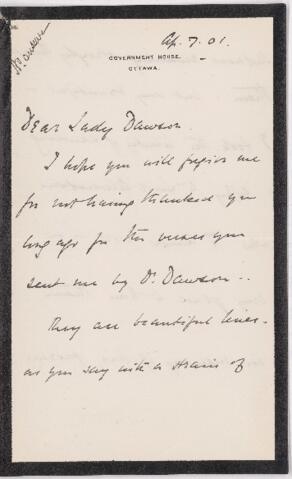 Ap. 7. 01.
GOVERNMENT HOUSE,
OTTAWA.
Dear Lady Dawson.
I hope you will forgive me
for not having thanked you
long ago for the verses you
sent me by Dr Dawson..
They are beautiful lines.
as you say with a strain of